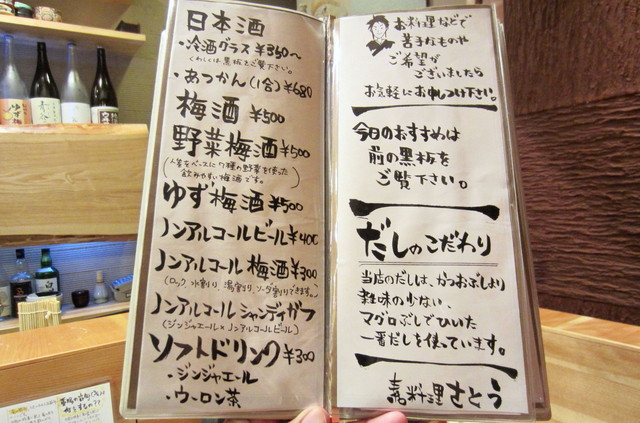 日本酒
・冷酒グラス ¥350〜
くわしくは黒板をご覧下さい。
・あつかん(1合)¥680
梅酒 ¥500
野菜梅酒 ¥500
(人参をベースに17種の野菜を使った
飲みやすい梅酒です。)
ゆず梅酒 ¥500
ノンアルコールビール ¥400
ノンアルコール梅酒 ¥300
(ロック、水割り、湯割り、ソーダ割りできます。)
ノンアルコール シャンディガフ
(ジンジャエール×ノンアルコールビール)
ソフトドリンク ¥300
・ジンジャエール
・ウーロン茶
お料理などで
苦手なものや
ご希望が
ございましたら
お気軽にお申しつけ下さい。
今日のおすすめは
前の黒板を
ご覧下さい。
だしのこだわり
当店のだしは、かつおぶしより
雑味の少ない、
マグロぶしでひいた
一番だしを使っています。
嘉料理さとう